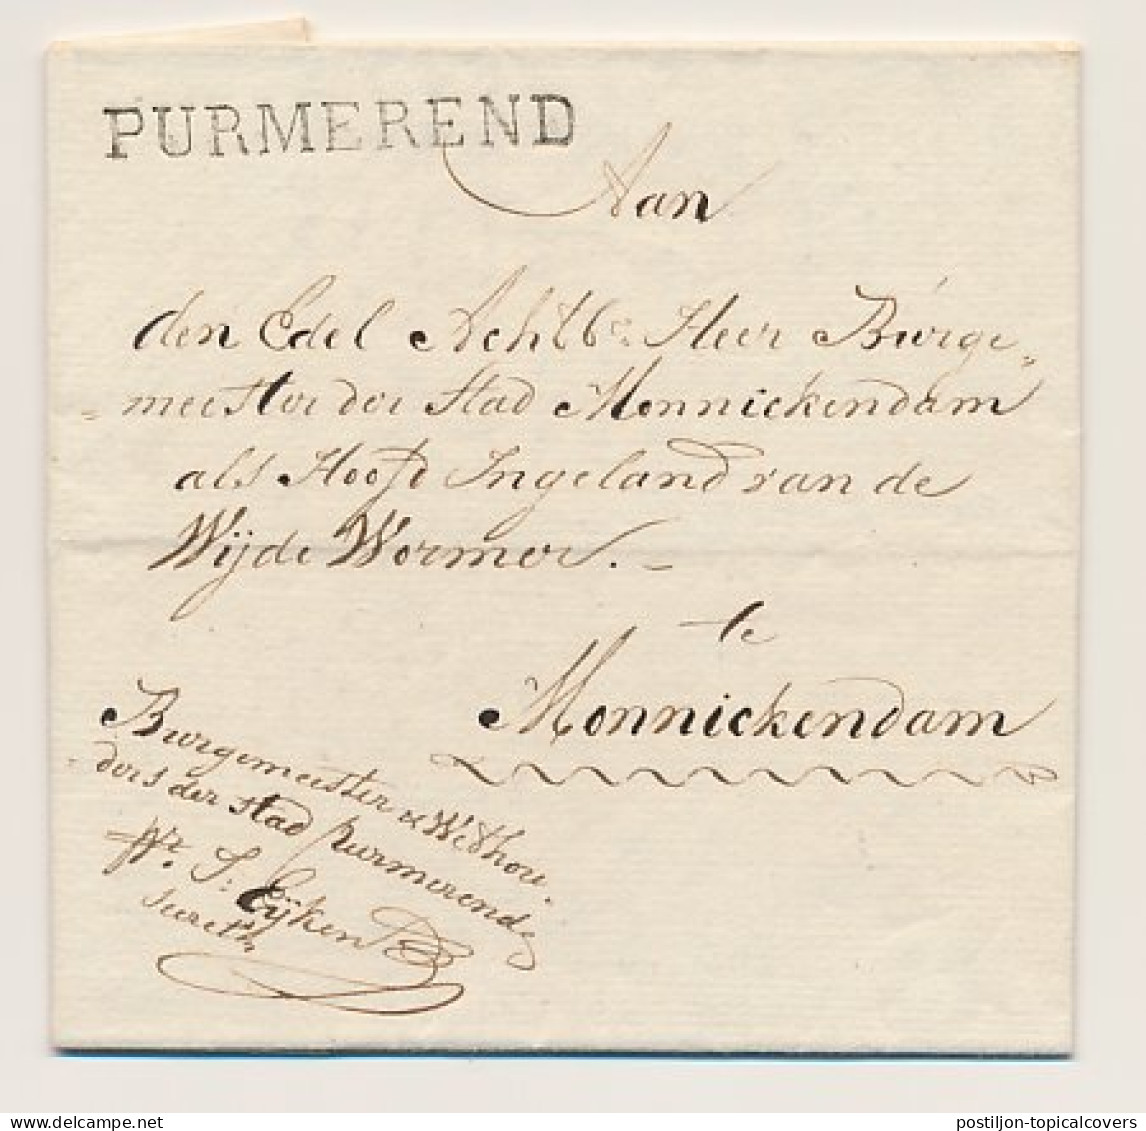 PURMEREND
Aan
den Edel Achtbr. Heer Burge„
„meester der Stad Monnickendam
als Hoofd Ingeland van de
Wijde Wormer. –
te
Monnickendam
Burgemeester & Wethou„
„ders der Stad Purmerend
S: Eijken
Secrets
postiljon-topicalcovers